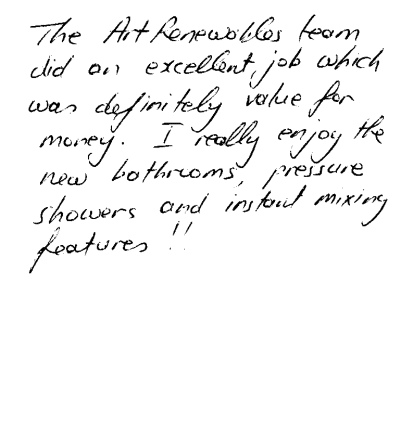 The ArtRenewables team
did an excellent job which
was definitely value for
money. I really enjoy the
new bathrooms, pressure
showers and instant mixing
features !!